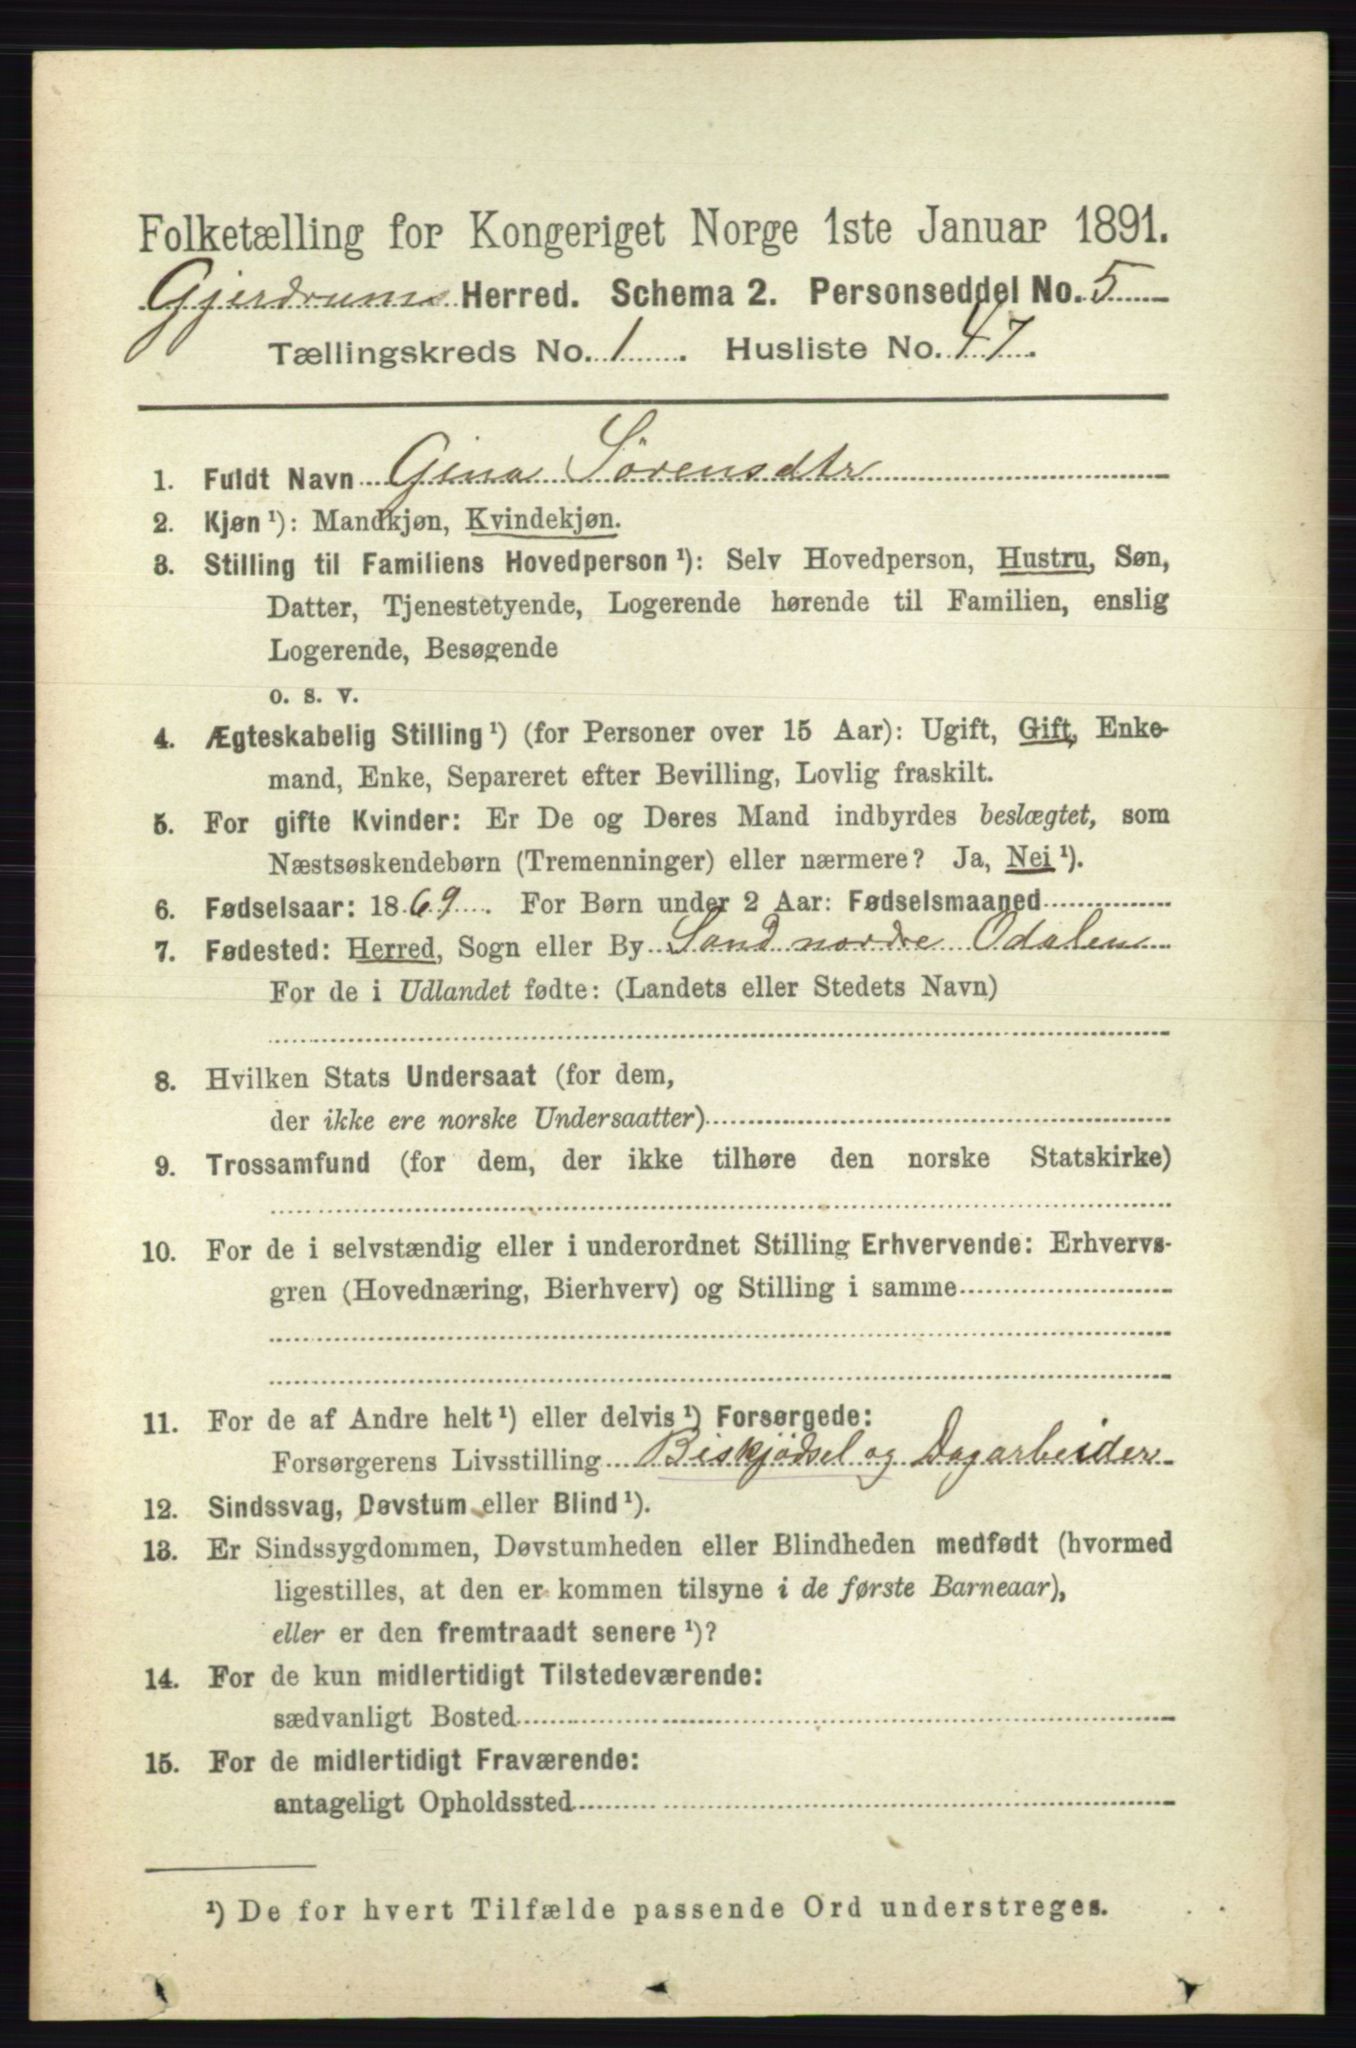 Folketælling for Kongeriget Norge 1ste Januar 1891.
Gjerdrums Herred. Schema 2. Personseddel No. 5
Tællingskreds No. 1. Husliste No. 47.
1. Fuldt Navn Gina Sörensdtr
2. Kjøn ¹): Mandkjøn, Kvindekjøn.
3. Stilling til Familiens Hovedperson ¹): Selv Hovedperson, Hustru, Søn,
Datter, Tjenestetyende, Logerende hørende til Familien, enslig
Logerende, Besøgende
o. s. v.
4. Ægteskabelig Stilling ¹) (for Personer over 15 Aar): Ugift, Gift, Enke-
mand, Enke, Separeret efter Bevilling, Lovlig fraskilt.
5. For gifte Kvinder: Er De og Deres Mand indbyrdes beslægtet, som
Næstsøskendebørn (Tremenninger) eller nærmere? Ja, Nei ¹).
6. Fødselsaar: 1869. For Børn under 2 Aar: Fødselsmaaned
7. Fødested: Herred, Sogn eller By Sand nordre Odalen
For de i Udlandet fødte: (Landets eller Stedets Navn)
8. Hvilken Stats Undersaat (for dem,
der ikke ere norske Undersaatter)
9. Trossamfund (for dem, der ikke tilhøre den norske Statskirke)
10. For de i selvstændig eller i underordnet Stilling Erhvervende: Erhvervs-
gren (Hovednæring, Bierhverv) og Stilling i samme
11. For de af Andre helt ¹) eller delvis ¹) Forsørgede:
Forsørgerens Livsstilling Biskjödsel og Dagarbeider
12. Sindssvag, Døvstum eller Blind ¹).
13. Er Sindssygdommen, Døvstumheden eller Blindheden medfødt (hvormed
ligestilles, at den er kommen tilsyne i de første Barneaar),
eller er den fremtraadt senere ¹)?
14. For de kun midlertidigt Tilstedeværende:
sædvanligt Bosted
15. For de midlertidigt Fraværende:
antageligt Opholdssted
¹) De for hvert Tilfælde passende Ord understreges.